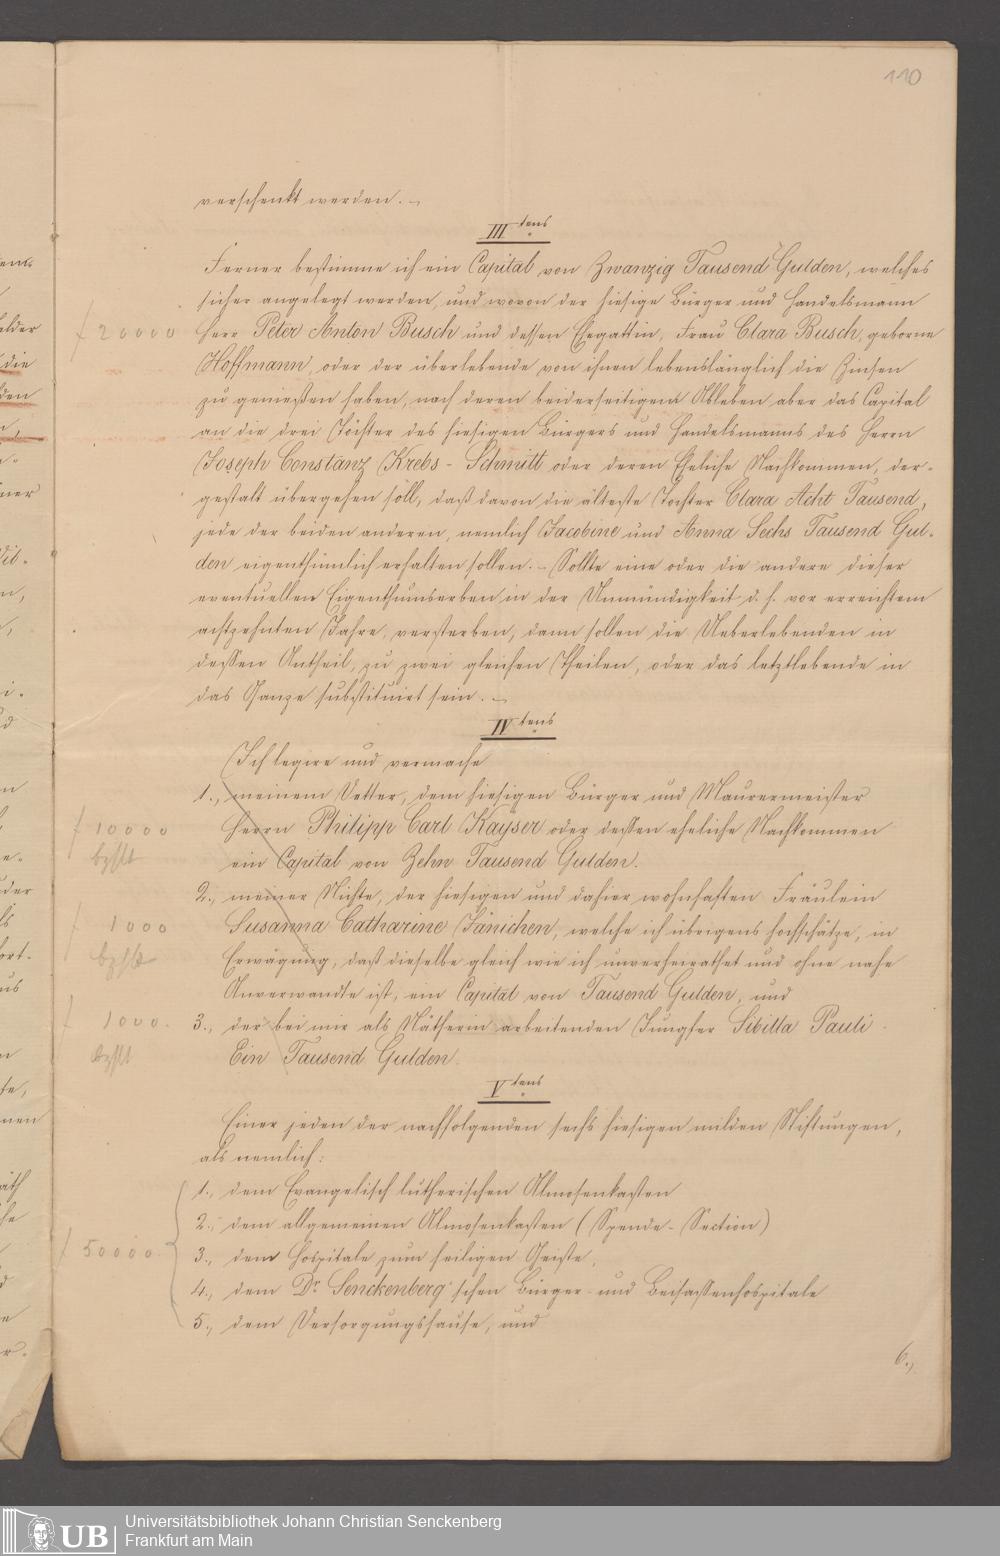 110
verschenkt werden. –
III tens
Ferner bestimme ich ein Capital von Zwanzig Tausend Gulden, welches
sicher angelegt werden, und wovon der hiesige Bürger und Handelsmann
f 20000
Herr Peter Anton Busch und dessen Ehegattin, Frau Clara Busch, geborne
Hoffmann, oder der überlebende von ihnen lebenslänglich die Zinsen
zu genießen haben, nach deren beiderseitigem Ableben aber das Capital
an die drei Töchter des hiesigen Bürgers und Handelsmanns des Herrn
Joseph Constanz Krebs-Schmitt oder deren Eheliche Nachkommen, der-
gestalt übergehen soll, daß davon die älteste Tochter Clara Acht Tausend,
jede der beiden anderen, nemlich Jacobine und Anna Sechs Tausend Gul-
den eigenthümlich erhalten sollen. – Sollte eine oder die andere dieser
eventuellen Eigenthumserben in der Unmündigkeit d. h. vor erreichtem
achtzehnten Jahre, versterben, dann sollen die Ueberlebenden in
dessen Antheil, zu zwei gleichen Theilen, oder das letztlebende in
das Ganze substituirt sein. –
IV tens
Ich legire und vermache
1., meinem Vetter, dem hiesigen Bürger und Maurermeister
f 10000
Herrn Philipp Carl Kayser oder dessen eheliche Nachkommen
bzhlt
ein Capital von Zehn Tausend Gulden.
2., meiner Nichte, der hiesigen und dahier wohnhaften Fräulein
f 1000
Susanna Catharine Jänichen, welche ich übrigens hochschätze, in
bzhlt
Erwägung, daß dieselbe gleich wie ich unverheirathet und ohne nahe
Anverwandte ist, ein Capital von Tausend Gulden, und
f 1000.
3., der bei mir als Nätherin arbeitenden Jungfer Sibilla Pauli
bzhlt
Ein Tausend Gulden.
V tens
Einer jeden der nachfolgenden sechs hiesigen milden Stiftungen,
als nemlich:
1., dem Evangelisch lutherischen Almosenkasten
2., dem allgemeinen Almosenkasten (Spende-Section)
f 50000.
3., dem Hospitale zum heiligen Geiste,
4., dem Dr. Senckenberg'schen Bürger- und Beisassenhospitale
5., dem Versorgungshause, und
6.,
UB
Universitätsbibliothek Johann Christian Senckenberg
Frankfurt am Main